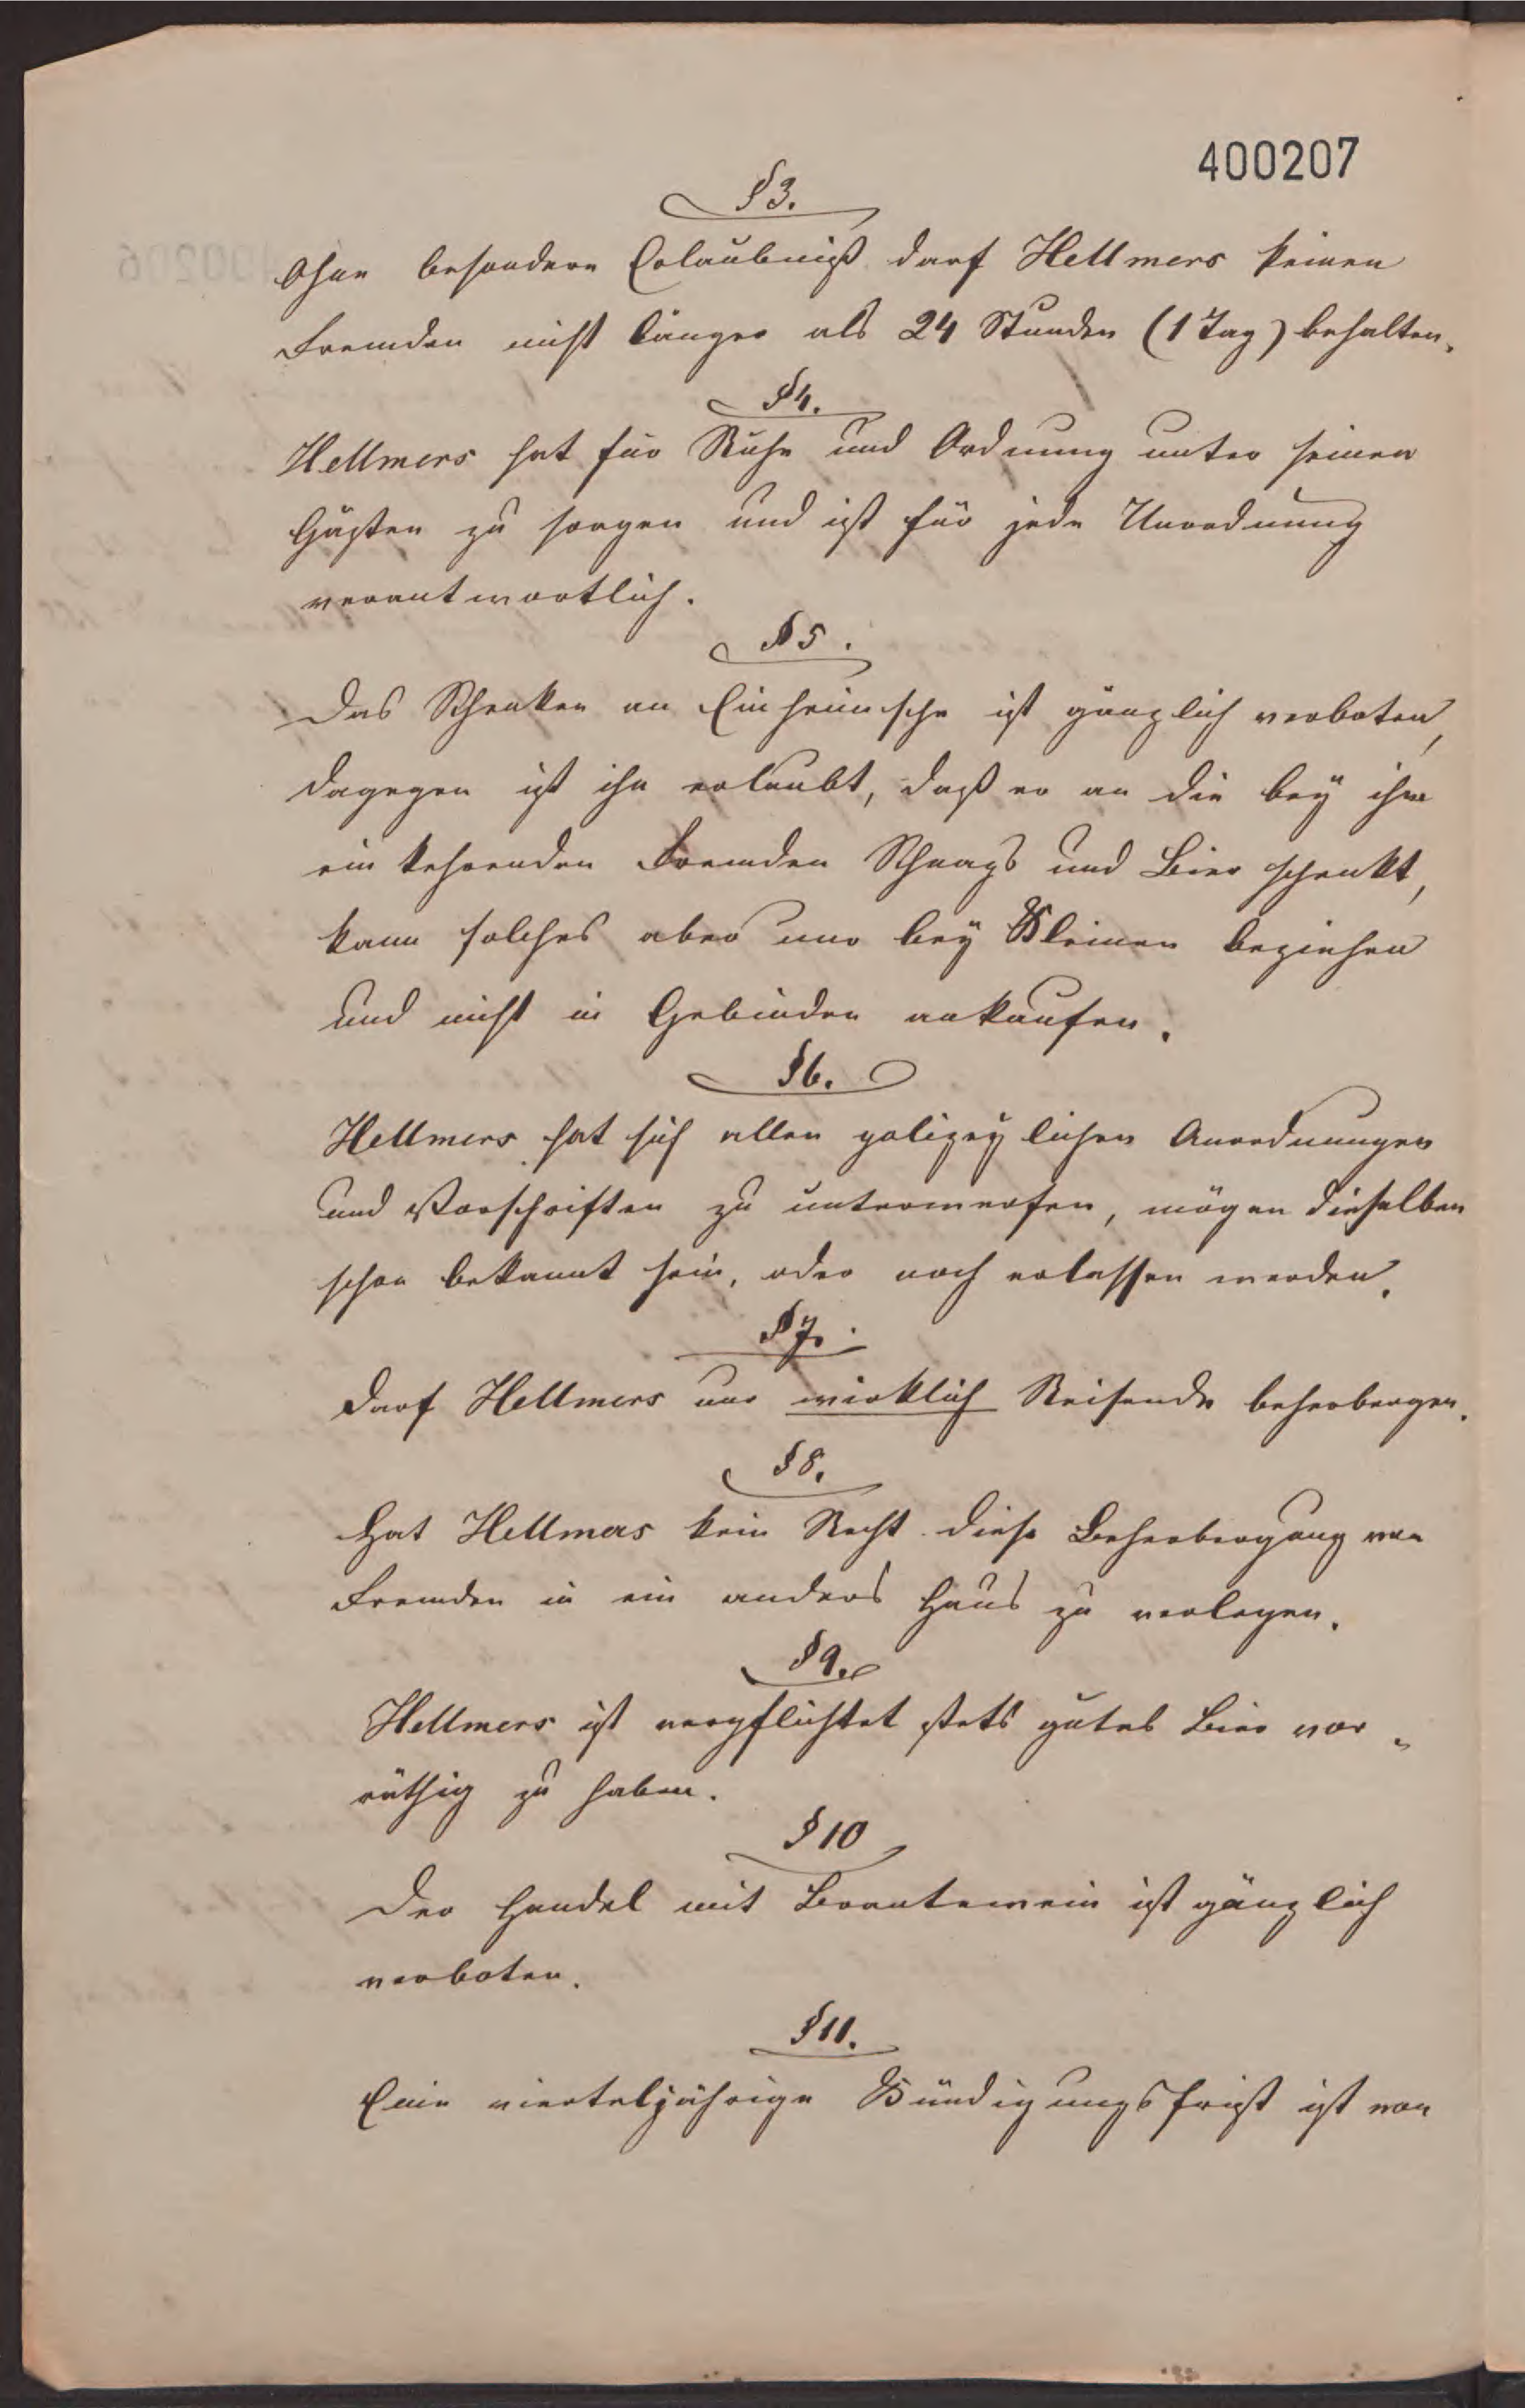 400207
§ 3.
Ohne besondere Erlaubniß darf Hellmers keinen
Fremden nicht länger als 24 Stunden (1 Tag) behalten.
§ 4.
Hellmers hat für Ruhe und Ordnung unter seinen
Gästen zu sorgen und ist für jede Unordnung
verantwortlich.
§ 5.
Das Schenken an Einheimische ist gänzlich verboten,
dagegen ist ihm erlaubt, daß er an die bey ihm
ein kehrenden Fremden Schnaps und Bier schenkt,
kann solches aber nur bey Kleinen beziehen
und nicht in Gebinden ankaufen.
§ 6.
Hellmers hat sich allen polizeylichen Anordnungen
und Vorschriften zu unterwerfen, mögen dieselben
schon bekannt sein, oder noch erlassen werden.
§ 7.
Darf Hellmers nur wirklich Reisende beherbergen.
§ 8.
Hat Hellmers kein Recht diese Beherbergung von
Fremden in ein anders Haus zu verlegen.
§ 9.
Hellmers ist verpflichtet stets gutes Bier vor-
räthig zu haben.
§ 10
Der Handel mit Brantewein ist gänzlich
verboten.
§ 11.
Eine vierteljährige Kündigungsfrist ist von